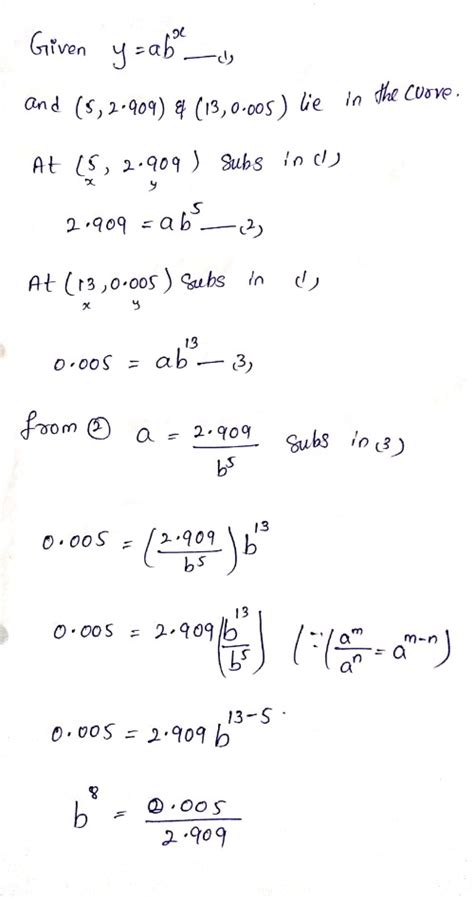 Given y = ab^x — (1)
and (5, 2.909) & (13, 0.005) lie in the curve.
At (5, 2.909) Subs in (1)
x y
2.909 = ab^5 — (2)
At (13, 0.005) Subs in (1)
x y
0.005 = ab^13 — 3)
from ② a = 2.909/b^5 Subs in (3)
0.005 = (2.909/b^5) b^13
0.005 = 2.909 (b^13/b^5) (∵ (a^m/a^n = a^m-n)
0.005 = 2.909 b^13-5 .
b^8 = 0.005/2.909